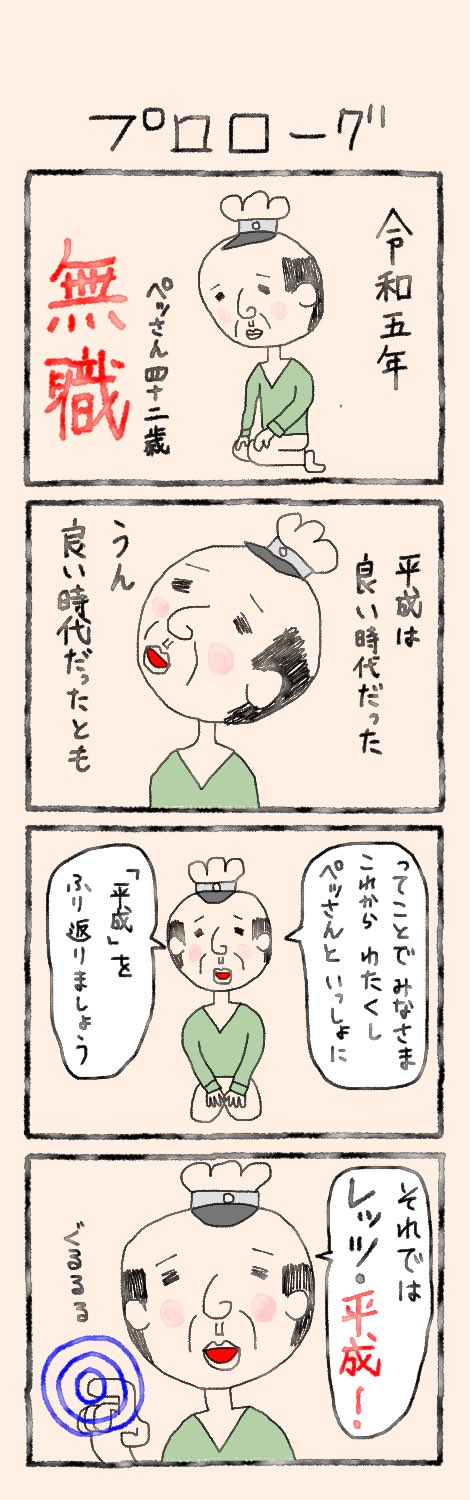 プロローグ
令和五年
ペッさん四十二歳
無職
平成は
良い時代だった
うん
良い時代だったとも
ってことで みなさま
これから わたくし
ペッさんと いっしょに
「平成」を
ふり返りましょう
それでは
レッツ・平成！
ぐるるる